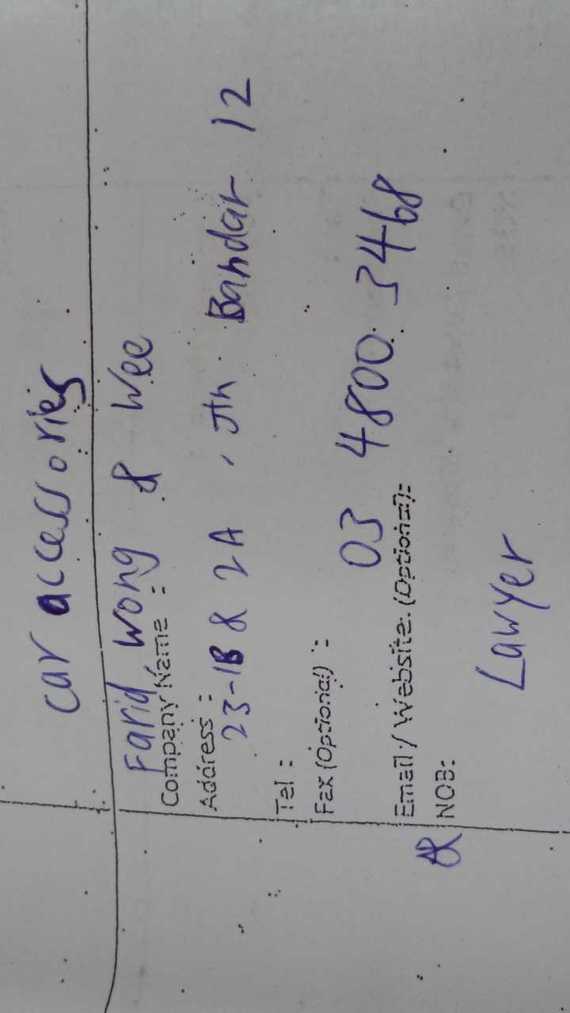 car accessories
Farid Wong & Wee
Company Name :
Address :
23-1B & 2A, Jln Bandar 12
Tel :
Fax (Optional) :
03 4800 3468
Email / Website (Optional):
NOB:
Lawyer